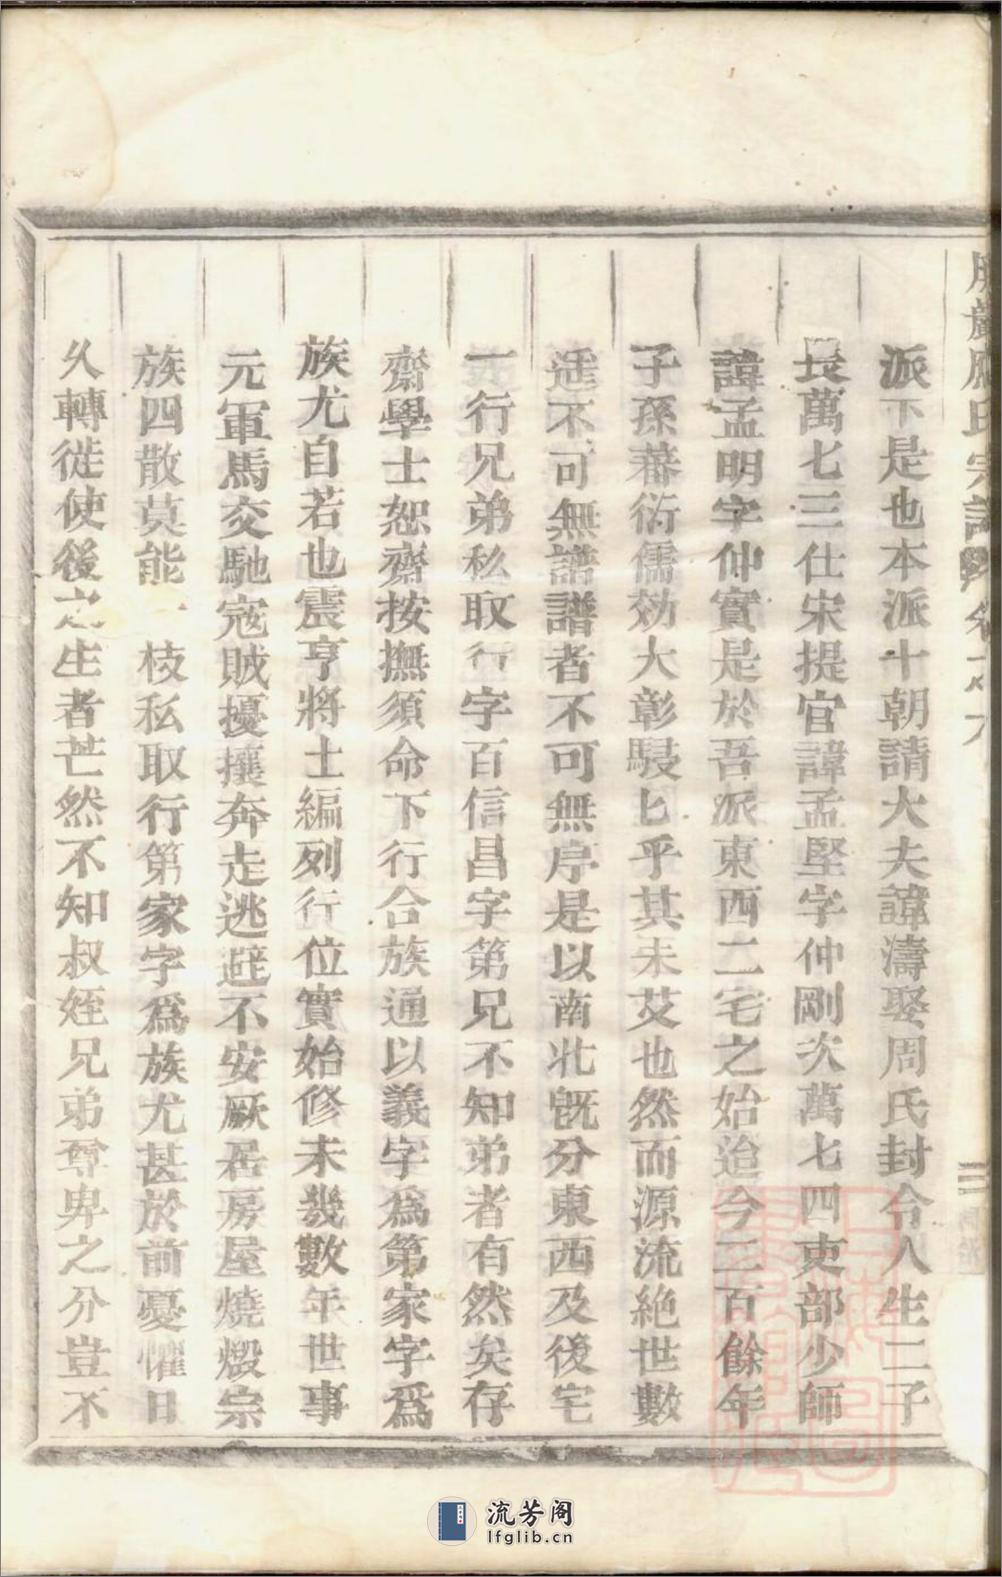 派下是也本派十朝請大夫諱濤娶周氏封令人生二子
長萬七三仕宋提官諱孟堅字仲剛次萬七四吏部少師
諱孟明字仲實是於吾派東西二宅之始迨今三百餘年
子孫蕃衍儒効大彰駸匕乎其未艾也然而源流絶世數
遥不可無譜譜者不可無序是以南北旣分東西及後宅
一行兄弟私取行字百信昌字第兄不知弟者有然矣存
齋學士恕齋按撫須命下行合族通以義字爲第家字爲
族尤自若也震亨將士編列行位實始修未幾數年世事
元軍馬交馳寇賊擾攘奔走逃避不安厥居房屋燒燬宗
族四散莫能一枝私取行第家字爲族尤甚於前憂懼日
久轉徙使後之生者芒然不知叔姪兄弟尊卑之分豈不
流芳阁
lfglib.cn